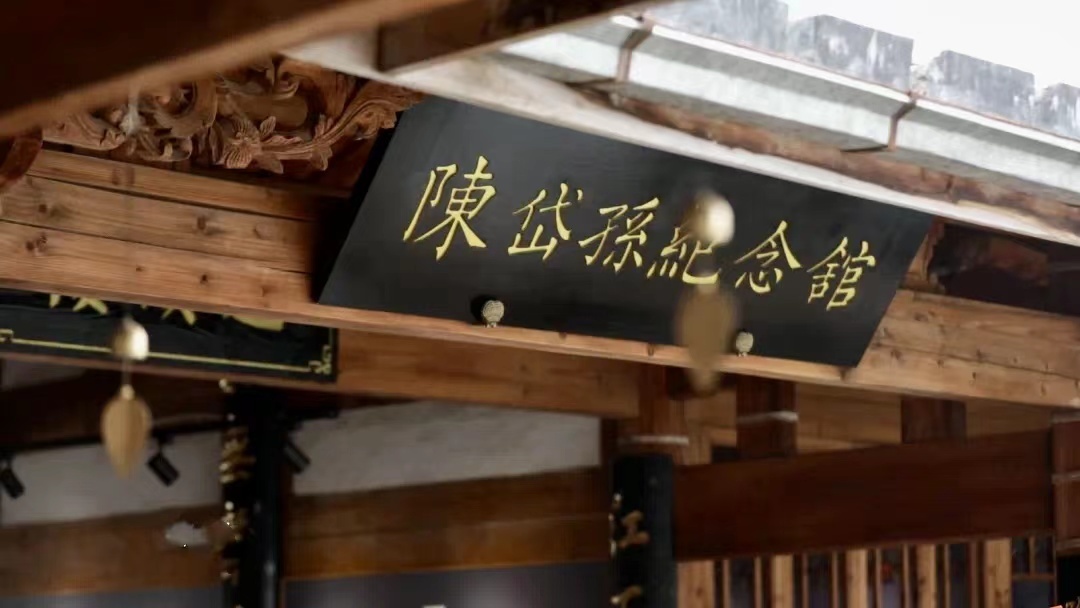 陳岱孫紀念館
江